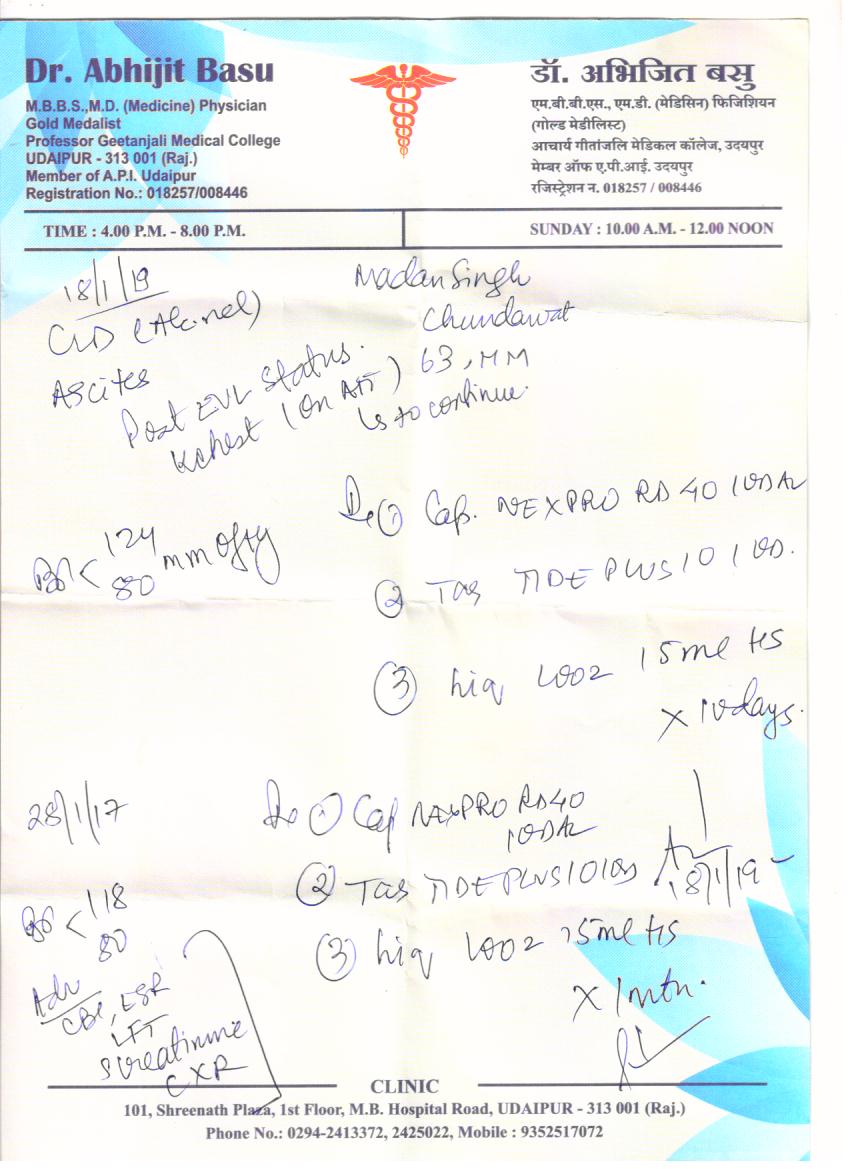 Dr. Abhijit Basu
M.B.B.S.,M.D. (Medicine) Physician
Gold Medalist
Professor Geetanjali Medical College
UDAIPUR - 313 001 (Raj.)
Member of A.P.I. Udaipur
Registration No.: 018257/008446
डॉ. अभिजित बसु
एम.बी.बी.एस., एम.डी. (मेडिसिन) फिजिशियन
(गोल्ड मेडीलिस्ट)
आचार्य गीतांजलि मेडिकल कॉलेज, उदयपुर
मेम्बर ऑफ ए.पी.आई. उदयपुर
रजिस्ट्रेशन न. 018257 / 008446
TIME : 4.00 P.M. - 8.00 P.M.
SUNDAY : 10.00 A.M. - 12.00 NOON
18/1/19
Madan Singh
Chundawat
63, MM
CLD
Ascites
Post EVL Status.
Kchest (On ATT)
to continue.
① Cap. NEXPRO RD 40 1 OD AC
BP < 124
80 mm of Hg
② Tab TIDE PLUS 10 1 OD.
③ Liq LOOZ 15ml HS
X 10 days.
28/1/17
① Cap NEXPRO RD 40
1 OD AC
② Tab TIDE PLUS 10 1 OD
18/1/19
BP < 118
80
③ Liq LOOZ 15ml HS
X 1 mth.
Adv
CBC, ESR
LFT
S creatinine
CXR
CLINIC
101, Shreenath Plaza, 1st Floor, M.B. Hospital Road, UDAIPUR - 313 001 (Raj.)
Phone No.: 0294-2413372, 2425022, Mobile : 9352517072